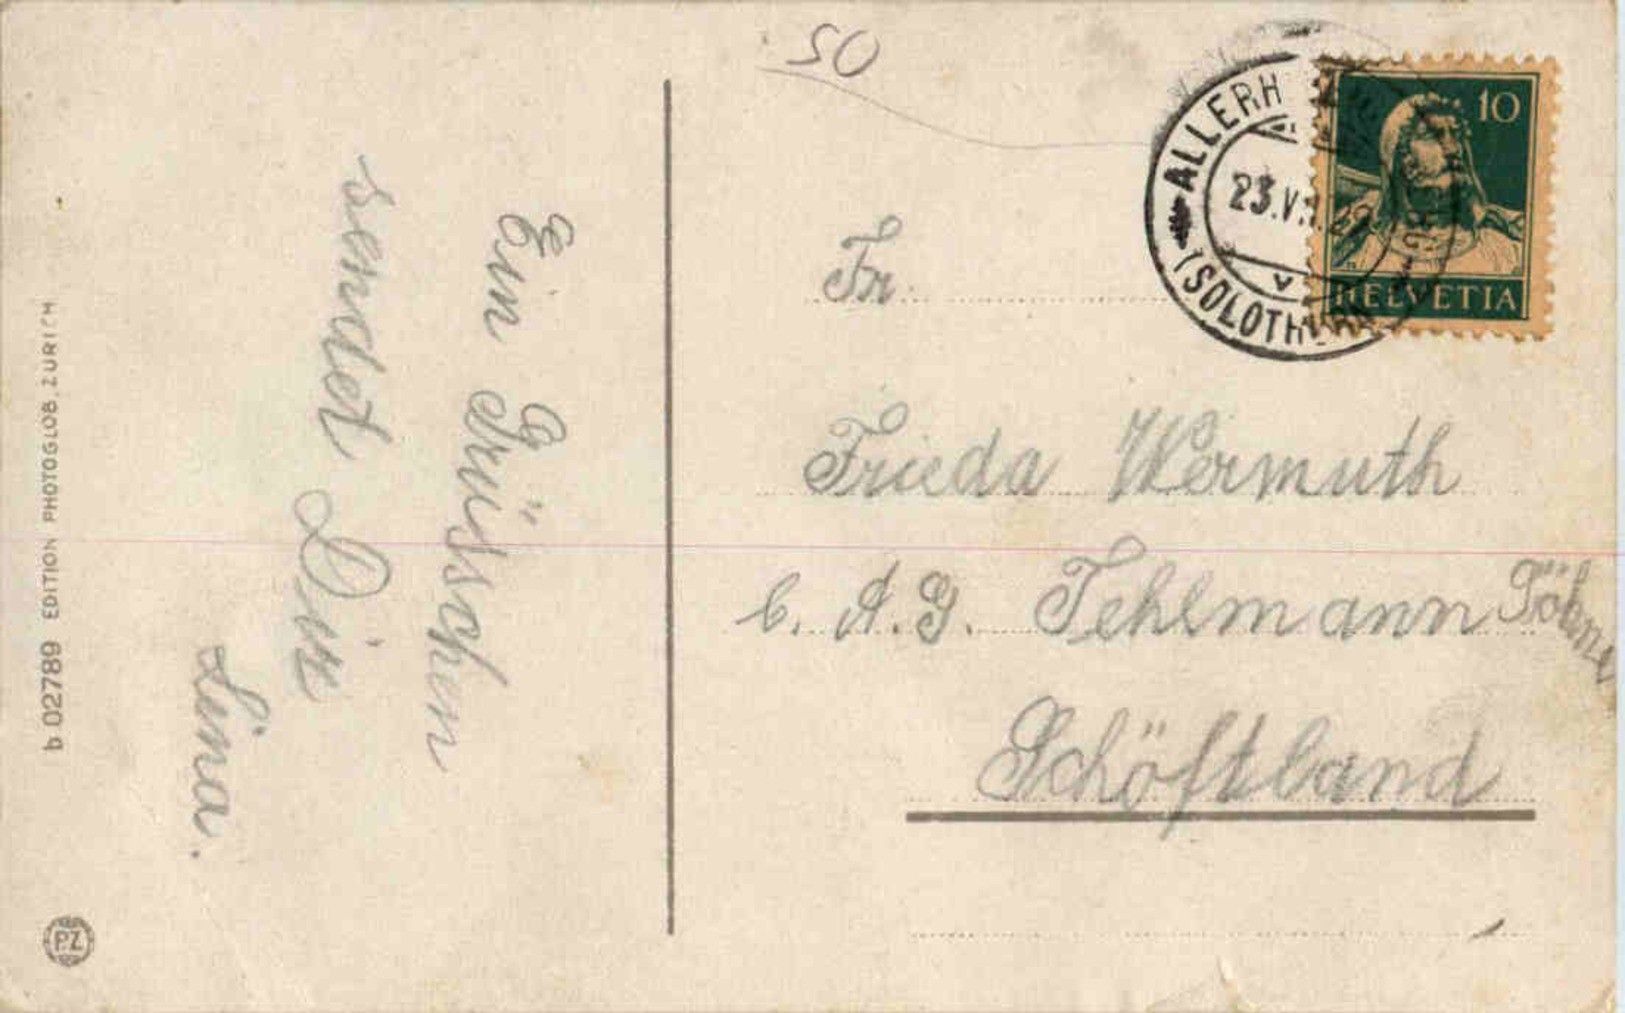 50
ALLERH
23.V
(SOLOTHURN
10
HELVETIA
Ein Grüsschen
sendet Dir
Lina.
Fr.
Frieda Wermuth
b. A. G. Fehlmann Söhne
Schöftland
b 02789 EDITION PHOTOGLOB. ZURICH
P.Z